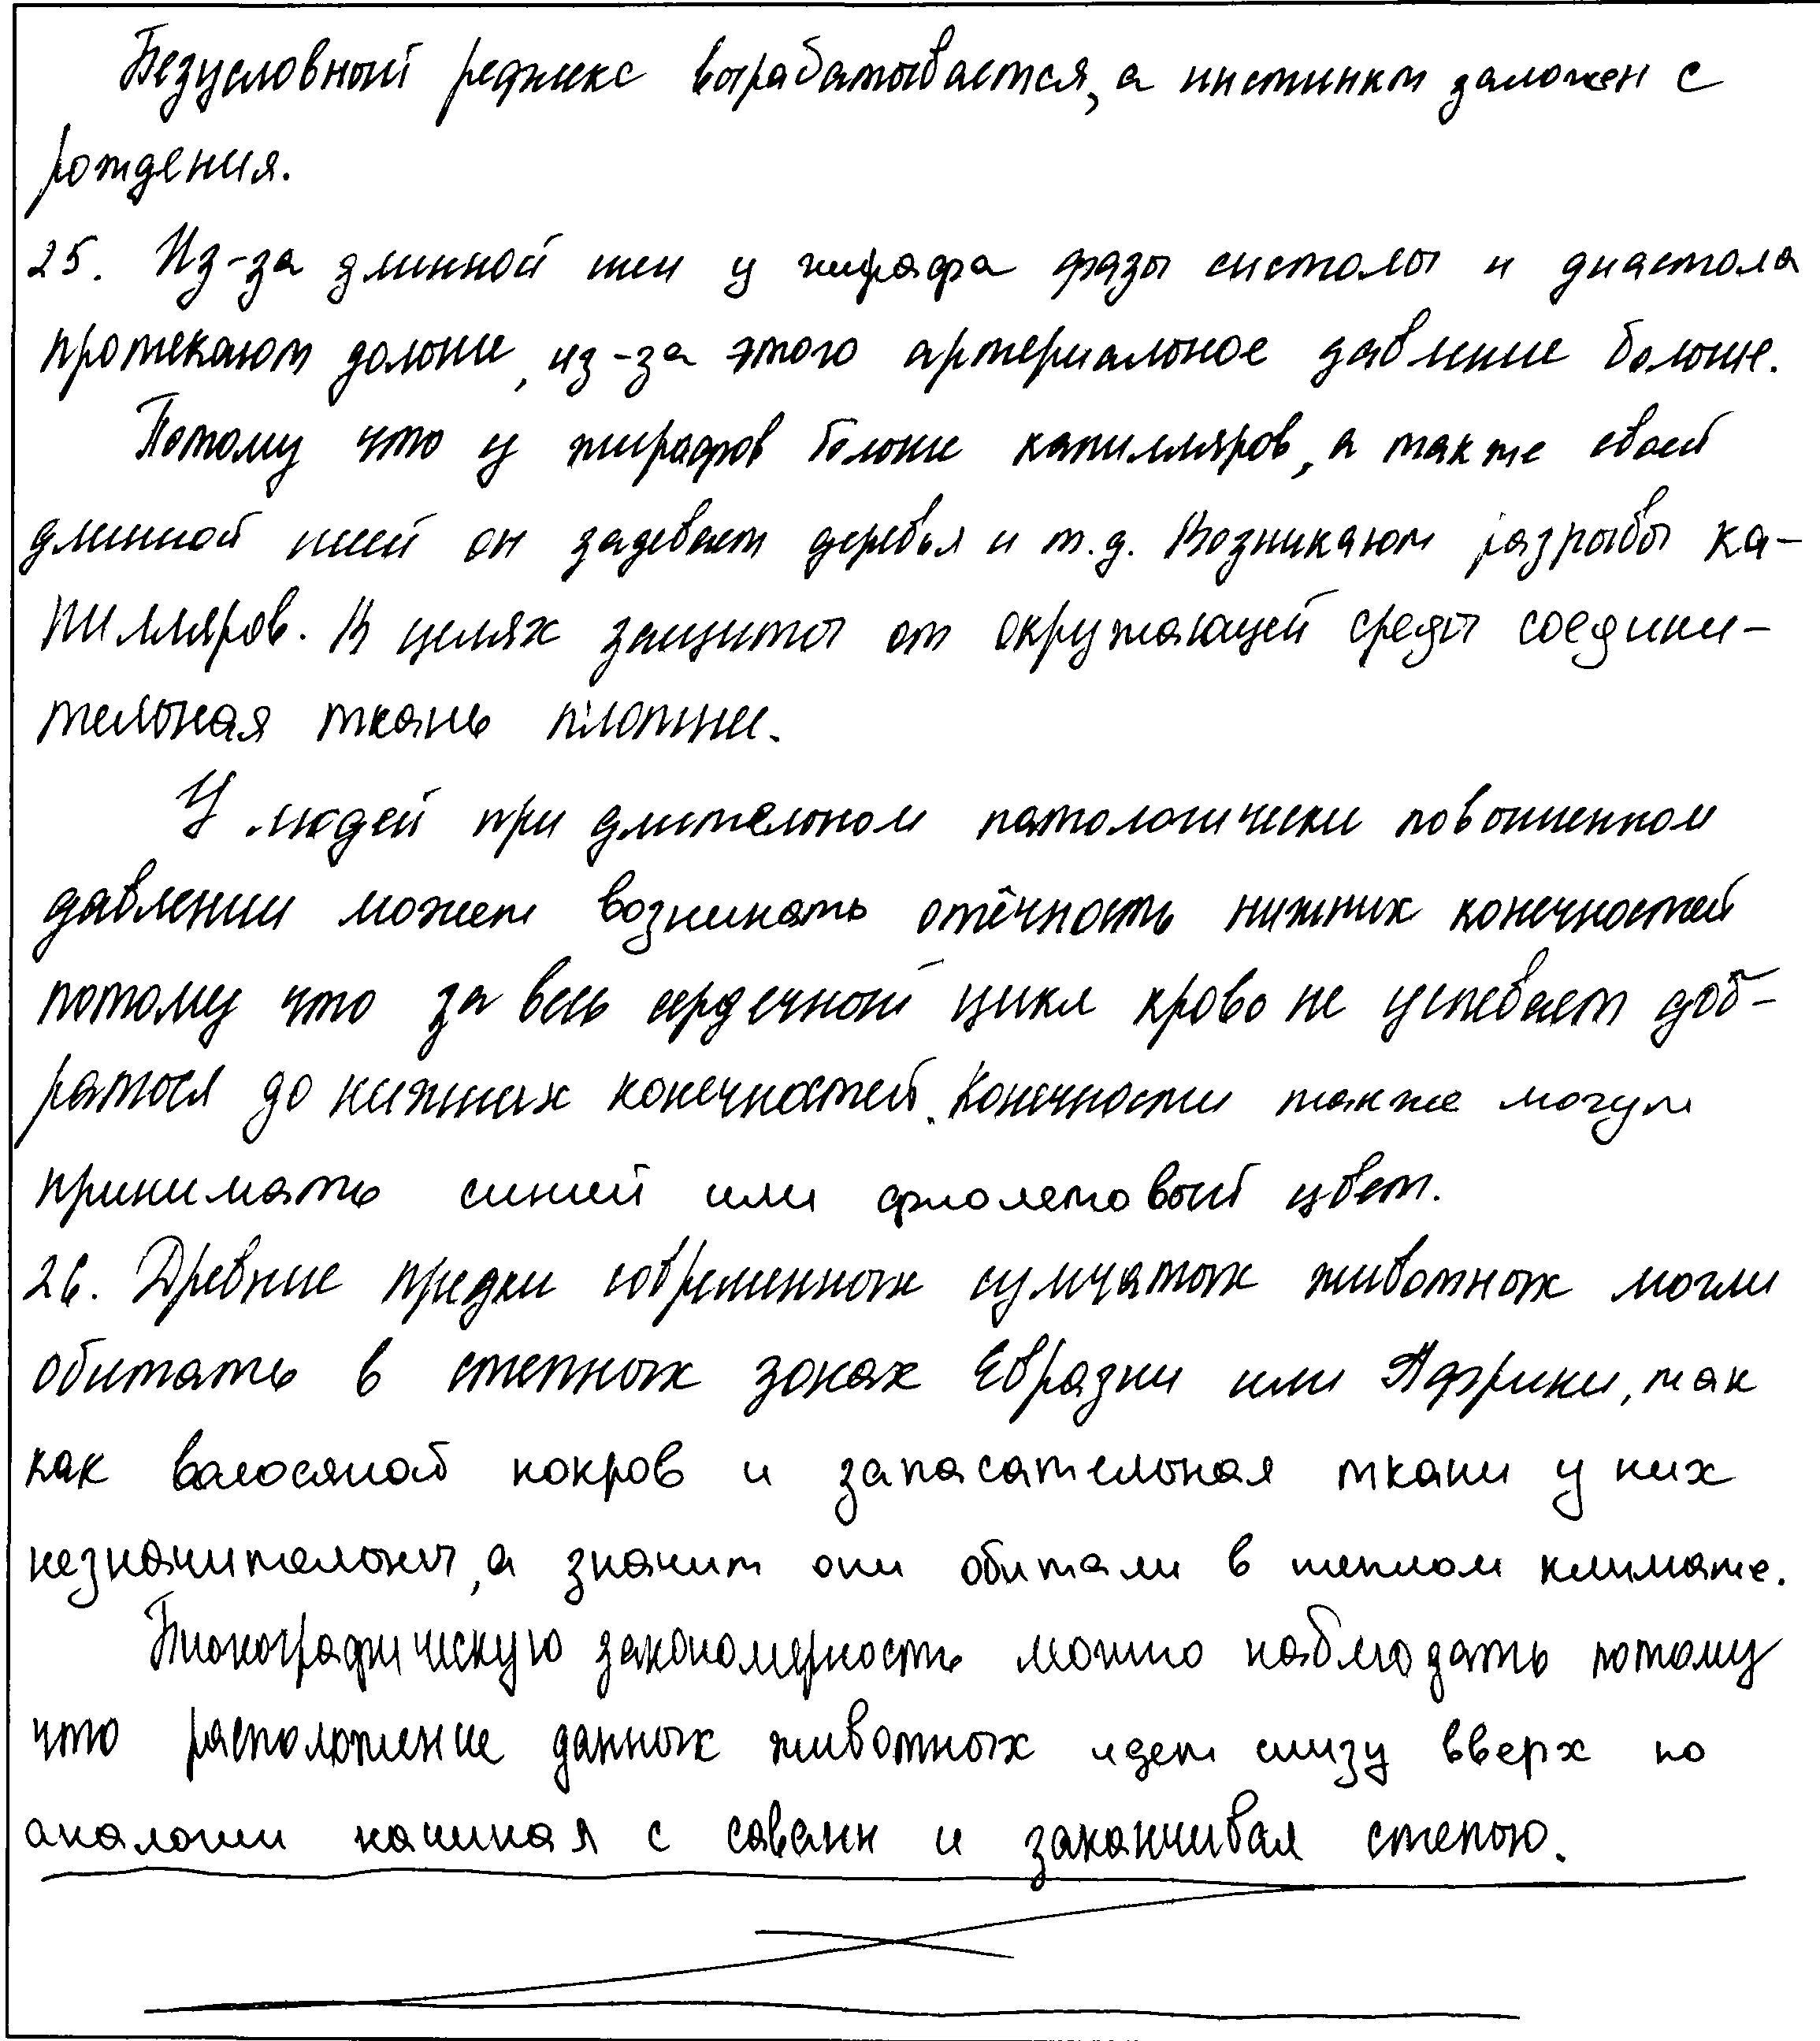 Безусловный рефлекс вырабатывается, а инстинкт заложен с
рождения.
25. Из-за длинной шеи у жирафа фазы систолы и диастола
протекают дольше, из-за этого артериальное давление больше.
Потому что у жирафов больше капилляров, а также своей
длинной шеей он задевает деревья и т.д. Возникают разрывы ка-
пилляров. В целях защиты от окружающей среды соедини-
тельная ткань плотнее.
У людей при длительном патологически повышенном
давлении может возникать отёчность нижних конечностей
потому что за весь сердечный цикл кровь не успевает доб-
раться до нижних конечностей. Конечности также могут
принимать синий или фиолетовый цвет.
26. Древние предки современных сумчатых животных могли
обитать в степных зонах Евразии или Африки, так
как волосяной покров и запасательная ткани у них
незначительны, а значит они обитали в теплом климате.
Биогеографическую закономерность можно наблюдать потому
что расположение данных животных идет снизу вверх по
аналогии начиная с саванн и заканчивая степью.